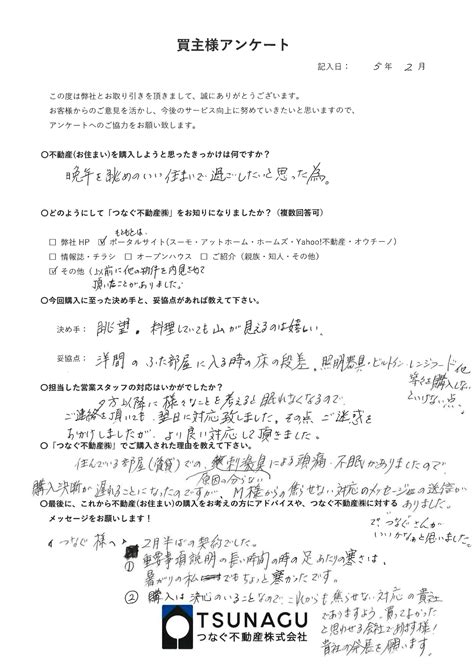 買主様アンケート
記入日： 5年 2月
この度は弊社とお取り引きを頂きまして、誠にありがとうございます。
お客様からのご意見を活かし、今後のサービス向上に努めていきたいと思いますので、
アンケートへのご協力をお願い致します。
〇不動産(お住まい)を購入しようと思ったきっかけは何ですか？
晩年を眺めのいい住まいで過ごしたいと思った為。
〇どのようにして「つなぐ不動産㈱」をお知りになりましたか？（複数回答可）
もともとは、
□ 弊社HP ☑ ポータルサイト(スーモ・アットホーム・ホームズ・Yahoo!不動産・オウチーノ)
□ 情報誌・チラシ □ オープンハウス □ ご紹介（親族・知人・その他）
☑ その他（以前に他の物件を内見させて
頂いたことがありました。
〇今回購入に至った決め手と、妥協点があれば教えて下さい。
決め手： 眺望。料理していても山が見えるのは嬉しい。
妥協点： 洋間のふた部屋に入る時の床の段差。照明器具・ビルトイン・レンジフード他
等は購入しないといけない点。
〇担当した営業スタッフの対応はいかがでしたか？
夕方以降に様々なことを考えると眠れなくなるので、
ご連絡を頂いても、翌日に対応致しました。その点、ご迷惑を
おかけしましたが、より良い対応して頂きました。
〇「つなぐ不動産㈱」でご購入された理由を教えて下さい。
住んでいる部屋(賃貸)での、刺激臭による頭痛・不眠がありましたので、
原因の分らない
購入決断が遅れることになったのですが、M様からの焦らせない対応のメッセージの送信が
ありました。
〇最後に、これから不動産(お住まい)の購入をお考えの方にアドバイスや、つなぐ不動産㈱に対する
メッセージをお願いします！
で、つなぐさんが
いいかなぁと思いました。
＜つなぐ様へ＞ 2月半ばの契約でした。
① 重要事項説明の長い時間の時の足あたりの寒さは、
暑がりの私でもちょっと寒かったです。
② 購入は決心のいることなので、これからも焦らせない対応の貴社
でありますよう。買ってよかった
と思わせる会社であります様！
貴社の発展を願います。
TSUNAGU
つなぐ不動産株式会社